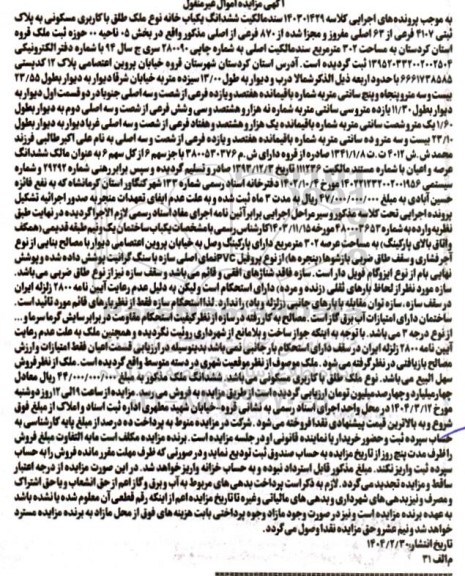 آگهی مزایده اموال غیرمنقول
به موجب پرونده‌های اجرایی کلاسه ۱۴۰۳۰۱۴۲۹ سندمالکیت ششدانگ یکباب خانه نوع ملک طلق با کاربری مسکونی به پلاک
ثبتی ۴۱۰۷ فرعی از ۶۳ اصلی مفروز و مجزا شده از ۸۷۰ فرعی از اصلی مذکور واقع در بخش ۰۵ ناحیه ۰۰ حوزه ثبت ملک قروه
استان کردستان به مساحت ۳۰۲ مترمربع سندمالکیت اصلی به شماره چاپی ۲۸۰۰۹۰ سری ج سال ۹۴ با شماره دفتر الکترونیکی
۱۳۹۵۲۰۳۳۲۰۰۲۰۰۲۵۰۴ ثبت گردیده است. آدرس استان کردستان شهرستان قروه خیابان پروین اعتصامی پلاک ۱۲ کدپستی
۶۶۶۱۷۳۸۵۸۵ با حدود اربعه ذیل الذکر شمالا درب و دیوار به طول ۱۳/۰۰ سیزده متر به خیابان شرقا دیوار به دیوار بطول ۲۳/۵۵
بیست و سه متر و پنجاه و پنج سانتی متر به شماره باقیمانده هفتصد و یازده فرعی از شصت و سه اصلی جنوبا در دو قسمت اول دیوار به
دیوار بطول ۱۱/۳۰ یازده متر و سی سانتی متر به شماره نه هزار و هشتصد و سی و شش فرعی از شصت و سه اصلی دوم به دیوار بطول
۱/۶۰ یک متر و شصت سانتی متر به شماره باقیمانده یک هزار و هشتصد و هفتاد فرعی از شصت و سه اصلی غربا دیوار به دیوار بطول
۲۳/۱۰ بیست و سه متر و ده سانتی متر به شماره باقیمانده هفتصد و یازده فرعی از شصت و سه اصلی به نام علی اکبر طالبی فرزند
محمد ش.ش ۴۰۱۲ ت.ت ۱۳۴۱/۱/۸ صادره از قروه دارای ش.م ۳۸۰۰۵۳۰۳۷۶ با جز سهم ۶ از کل سهم ۶ به عنوان مالک ششدانگ
عرصه و اعیان با شماره مستند مالکیت ۱۱۱۲۳ تاریخ صادر و تسلیم گردیده و سپس برابر رهنی شماره ۲۹۲۹۲ و شماره
سیستمی مورخ دفترخانه اسناد رسمی شماره ۱۳۳ شهر کنگاور استان کرمانشاه که به نفع فائزه
حسین آبادی به مبلغ ریال به مدت ۳ ماه ثبت شده و به علت عدم ایفای تعهدات منجر به صدور اجرائیه تشکیل
پرونده اجرایی تحت کلاسه مذکور سیر مراحل اجرایی برابر آئین نامه اجرای مفاد اسناد رسمی لازم الاجرا گردیده در نهایت طبق
نظریه وارده به شماره مورخه ۱۴۰۳/۱۱/۱۵ کارشناس رسمی با مشخصات یکباب ساختمان یک و نیم طبقه قدیمی (همکف
و اتاق بالای پارکینگ) به مساحت عرصه ۳۰۲ مترمربع دارای پارکینگ وصل به خیابان پروین اعتصامی دیوار با مصالح بنایی از نوع
آجر فشاری و سقف طاق ضربی بازشوها (پنجره ها) از نوع پروفیل PVC نمای اصلی سازه با سنگ گرانیت پوشش داده شده و پوشش
نهایی بام از نوع ایزوگام فویل دار است. سازه فاقد شناژهای افقی و قائم می باشد و سقف سازه نیز از نوع طاق ضربی می باشد.
سازه مورد نظر از لحاظ بارهای ثقلی (زنده و مرده) دارای استحکام است ولیکن به دلیل عدم رعایت آیین نامه ۲۸۰۰ زلزله ایران
در سقف سازه، سازه توان مقابله با بارهای جانبی (زلزله و باد) را ندارد. لذا استحکام سازه فقط از نظر بارهای قائم مورد تائید است.
ساختمان دارای امتیازات آب برق گاز است. مصالح به کار رفته در سازه از نظر کیفیت استحکام مقاومت در برابر سایش گرما سرما و...
از نوع درجه ۳ می باشد. با توجه به اینکه جواز ساخت و پلامانع از شهرداری رؤیت نگردیده و همچنین ملک به علت عدم رعایت
آیین نامه ۲۸۰۰ زلزله ایران در سقف دارای استحکام بار جانبی نمی باشد بدینوسیله در ارزیابی قسمت اعیان فقط امتیازات و ارزش
مصالح بازیافتی در نظر گرفته می شود. ملک موصوف از نظر موقعیت شهری در دسته متوسط واقع گردیده است. ملک از نظر فروش
سهل البیع می باشد. نوع ملک طلق با کاربری مسکونی می باشد. ششدانگ ملک مذکور به مبلغ ۴۴/۰۰۰/۰۰۰/۰۰۰ ریال معادل
چهار میلیارد و چهارصد میلیون تومان ارزیابی گردیده است از طریق مزایده به فروش می رسد. مزایده از ساعت ۹ الی ۱۲ روز دوشنبه
مورخ ۱۴۰۴/۳/۱۲ در محل واحد اجرای اسناد رسمی به نشانی قروه خیابان شهید مطهری اداره ثبت اسناد و املاک از مبلغ فوق
شروع و به بالاترین قیمت پیشنهادی نقدا فروخته می شود. شرکت در مزایده منوط به پرداخت ده درصد از مبلغ پایه کارشناسی به
حساب سپرده ثبت و حضور خریدار یا نماینده قانونی او در جلسه مزایده است. برنده مزایده مکلف است مابه التفاوت مبلغ فروش
را ظرف مدت پنج روز از تاریخ مزایده به حساب صندوق ثبت تودیع نماید و در صورتی که ظرف مهلت مقرر مانده فروش را به حساب
سپرده ثبت واریز نکند. مبلغ مذکور قابل استرداد نبوده و به حساب خزانه واریز خواهد شد. در این صورت مزایده از درجه اعتبار
ساقط و مزایده تجدید می گردد. لازم به ذکر است پرداخت بدهی های مربوط به آب و برق و گاز اعم از حق انشعاب و یا حق اشتراک
و مصرف و نیز بدهی های شهرداری و بدهی های مالیاتی و غیره تا تاریخ مزایده اعم از اینکه رقم قطعی آن معلوم شده یا نشده باشد
به عهده برنده مزایده است و نیز در صورت وجود مازاد وجوه پرداختی بابت هزینه های فوق از محل مازاد به برنده مزایده مسترد
خواهد شد و نیم عشر و حق مزایده نقدا وصول می گردد.
تاریخ انتشار: ۱۴۰۴/۲/۳۰
م/الف ۳۱